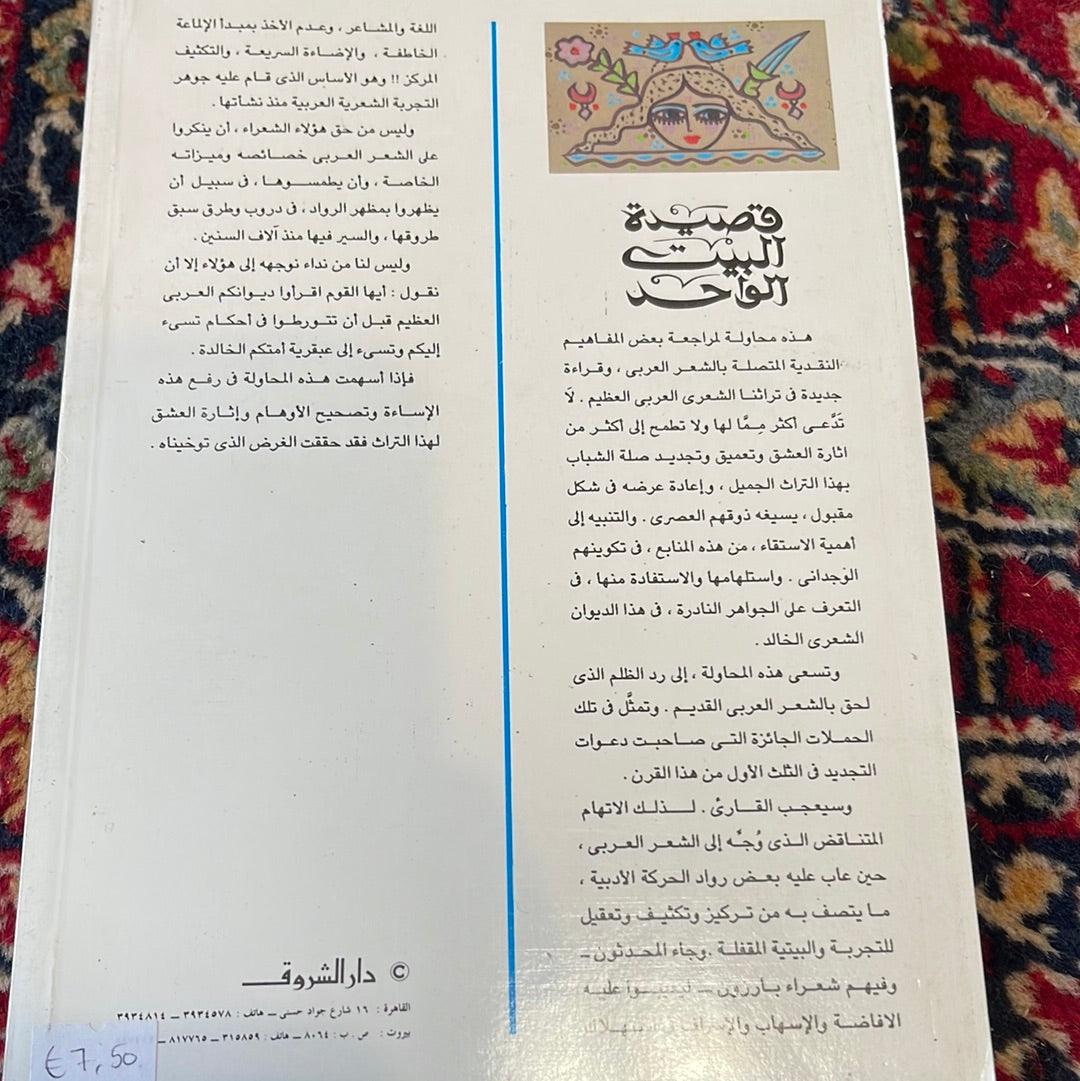 قصيدة
البيت
الواحد
هذه محاولة لمراجعة بعض المفاهيم
النقدية المتصلة بالشعر العربى ، وقراءة
جديدة فى تراثنا الشعرى العربى العظيم . لَا
تَدَّعى أكثر مِمَّا لها ولا تطمح إلى أكثر من
اثارة العشق وتعميق وتجديد صلة الشباب
بهذا التراث الجميل ، وإعادة عرضه فى شكل
مقبول ، يسيغه ذوقهم العصرى . والتنبيه إلى
أهمية الاستقاء ، من هذه المنابع ، فى تكوينهم
الوَجدانى . واستلهامها والاستفادة منها ، فى
التعرف على الجواهر النادرة ، فى هذا الديوان
الشعرى الخالد .
وتسعى هذه المحاولة ، إلى رد الظلم الذى
لحق بالشعر العربى القديم . وتمثَّل فى تلك
الحملات الجائزة التى صاحبت دعوات
التجديد فى الثلث الأول من هذا القرن .
وسيعجب القارئ . لذلك الاتهام
المتناقض الذى وُجِّه إلى الشعر العربى ،
حين عاب عليه بعض رواد الحركة الأدبية ،
ما يتصف به من تركيز وتكثيف وتعقيل
للتجربة والبيتية المقفلة . وجاء المحدثون ـ
وفيهم شعراء بارزون ـ عليه
الافاضة والإسهاب والإسراف
اللغة والمشاعر ، وعدم الأخذ بمبدأ الإلماعة
الخاطفة ، والإضاءة السريعة ، والتكثيف
المركز !! وهو الأساس الذى قام عليه جوهر
التجربة الشعرية العربية منذ نشأتها .
وليس من حق هؤلاء الشعراء ، أن ينكروا
على الشعر العربى خصائصه وميزاته
الخاصة ، وأن يطمسوها ، فى سبيل أن
يظهروا بمظهر الرواد ، فى دروب وطرق سبق
طروقها ، والسير فيها منذ آلاف السنين .
وليس لنا من نداء نوجهه إلى هؤلاء إلا أن
نقول : أيها القوم اقرأوا ديوانكم العربى
العظيم قبل أن تتورطوا فى أحكام تسىء
إليكم وتسىء إلى عبقرية أمتكم الخالدة .
فإذا أسهمت هذه المحاولة فى رفع هذه
الإساءة وتصحيح الأوهام وإثارة العشق
لهذا التراث فقد حققت الغرض الذى توخيناه .
© دار الشروق
القاهرة : ١٦ شارع جواد حسنى ــ هاتف : ٣٩٣٤٥٧٨ ــ ٣٩٣٤٨١٤
بيروت : ص . ب : ٨٠٦٤ ــ هاتف : ٣١٥٨٥٩ ــ ٨١٧٧٦٥ ــ
€ 7,50